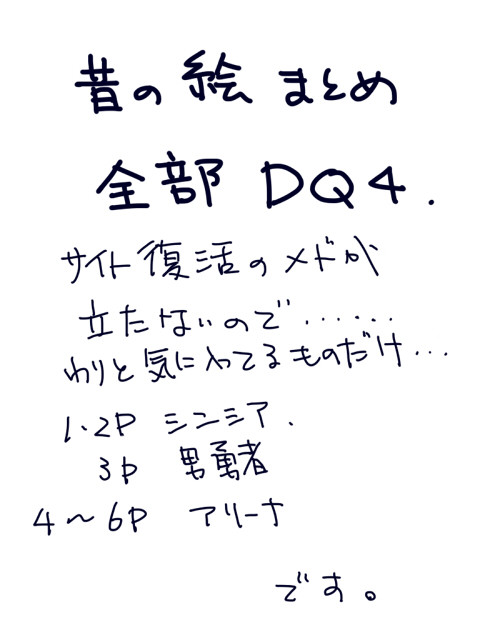 昔の絵まとめ
全部 DQ4.
サイト復活のメドが
立たないので・・・・・・
わりと気に入ってるものだけ・・・
1・2P シンシア.
3P 男勇者
4～6P アリーナ
です。